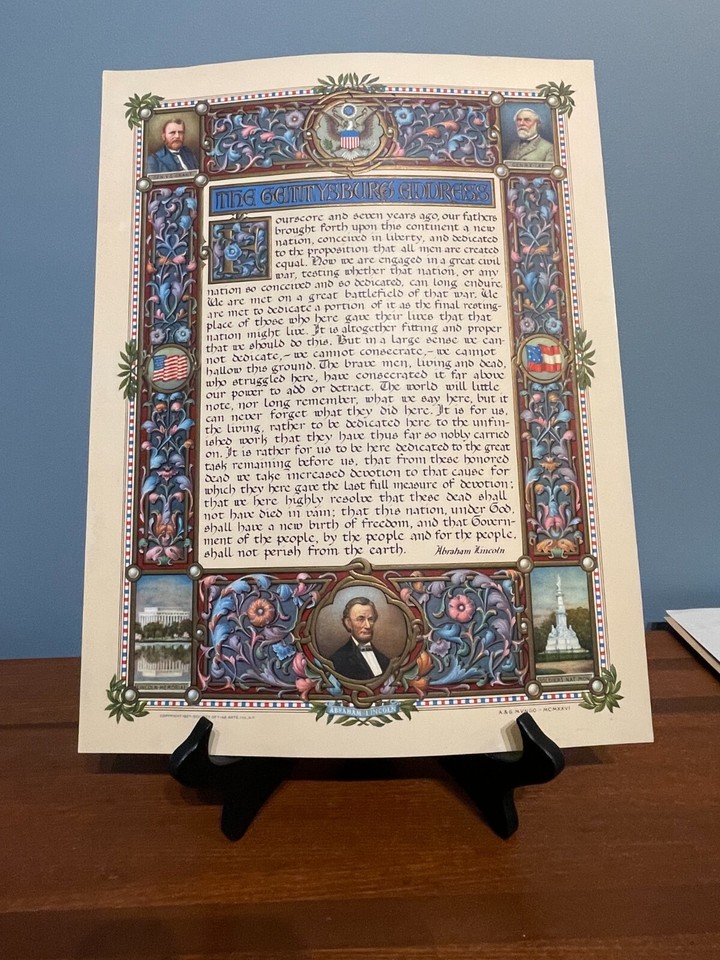 THE GETTYSBURG ADDRESS
Fourscore and seven years ago, our fathers
brought forth upon this continent a new
nation, conceived in liberty, and dedicated
to the proposition that all men are created
equal. Now we are engaged in a great civil
war, testing whether that nation, or any
nation so conceived and so dedicated, can long endure.
We are met on a great battlefield of that war. We
are met to dedicate a portion of it as the final resting-
place of those who here gave their lives that that
nation might live. It is altogether fitting and proper
that we should do this. But in a large sense we can-
not dedicate,- we cannot consecrate,- we cannot
hallow this ground. The brave men, living and dead,
who struggled here, have consecrated it far above
our power to add or detract. The world will little
note, nor long remember, what we say here, but it
can never forget what they did here. It is for us,
the living, rather to be dedicated here to the unfin-
ished work that they have thus far so nobly carried
on. It is rather for us to be here dedicated to the great
task remaining before us, that from these honored
dead we take increased devotion to that cause for
which they here gave the last full measure of devotion;
that we here highly resolve that these dead shall
not have died in vain; that this nation, under God,
shall have a new birth of freedom, and that Govern-
ment of the people, by the people and for the people,
shall not perish from the earth.
Abraham Lincoln
ABRAHAM LINCOLN